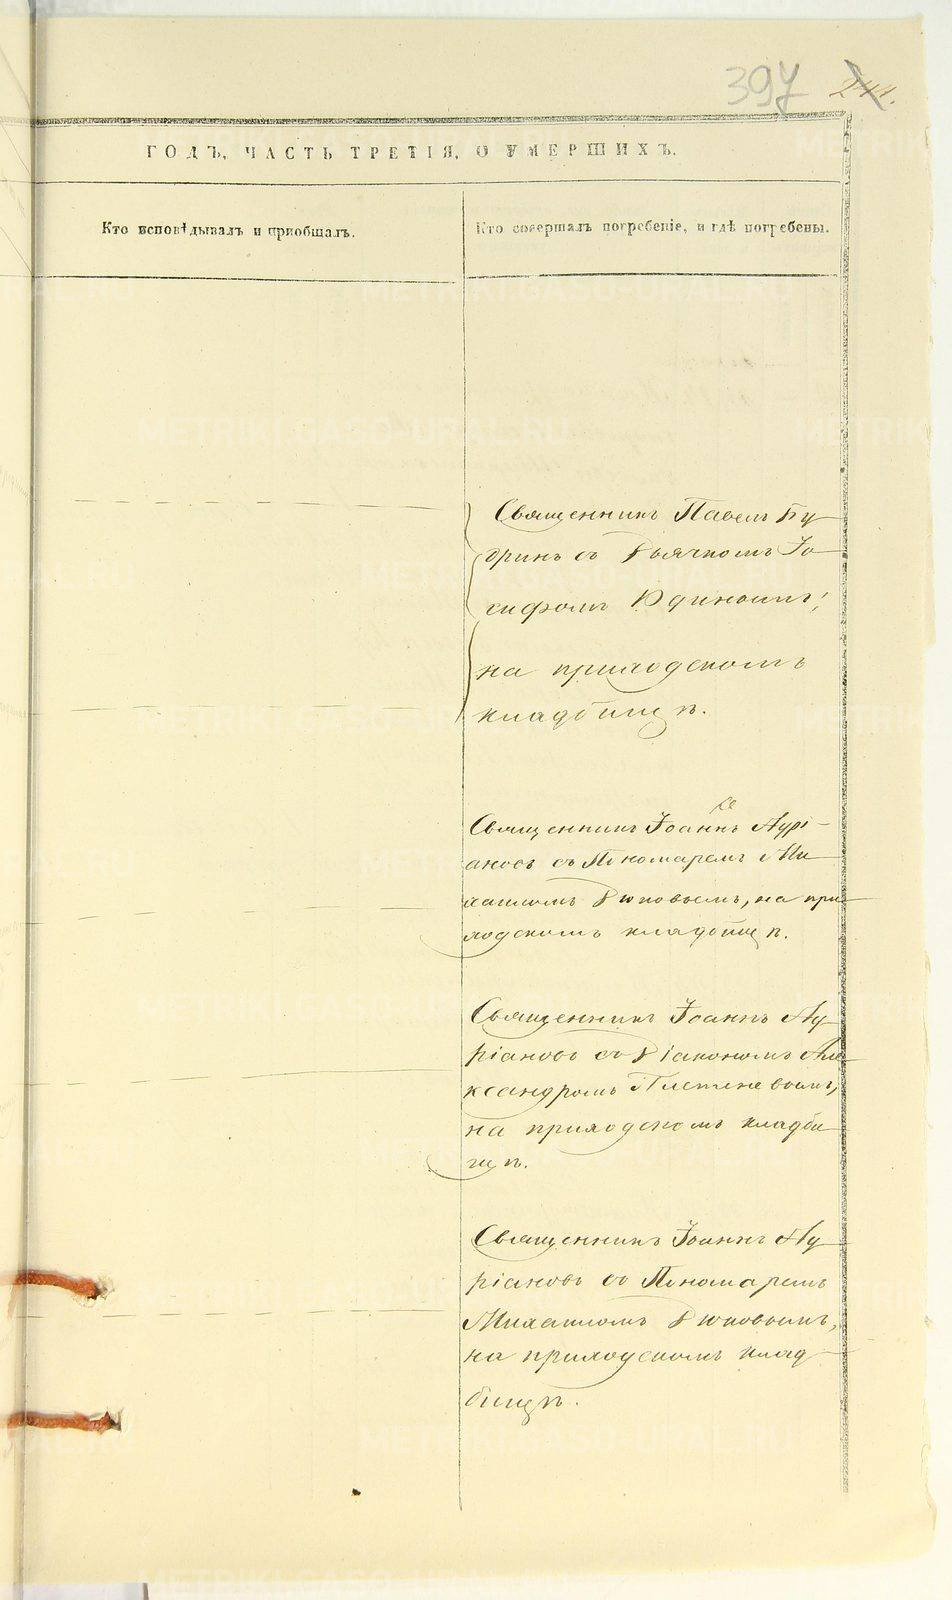 397 241.
ГОДЪ, ЧАСТЬ ТРЕТІЯ, О УМЕРШИХЪ.
Кто исповѣдывалъ и пріобщалъ.
Кто совершалъ погребеніе, и гдѣ погребены.
Священникъ Павелъ Бу-
дринъ съ Дьячкомъ Іо-
сифомъ Юдинымъ,
на приходскомъ
кладбищѣ.
Священникъ Іоаннъ Аурі-
ановъ съ Пономаремъ Ми-
хаиломъ Дюковымъ, на при-
ходскомъ кладбищѣ.
Священникъ Іоаннъ Ау-
ріановъ съ Діакономъ Але-
ксандромъ Плетневымъ,
на приходскомъ кладби-
щѣ.
Священникъ Іоаннъ Ау-
ріановъ съ Пономаремъ
Михаиломъ Дюковымъ,
на приходскомъ клад-
бищѣ.
METRIKI.GASO-URAL.RU